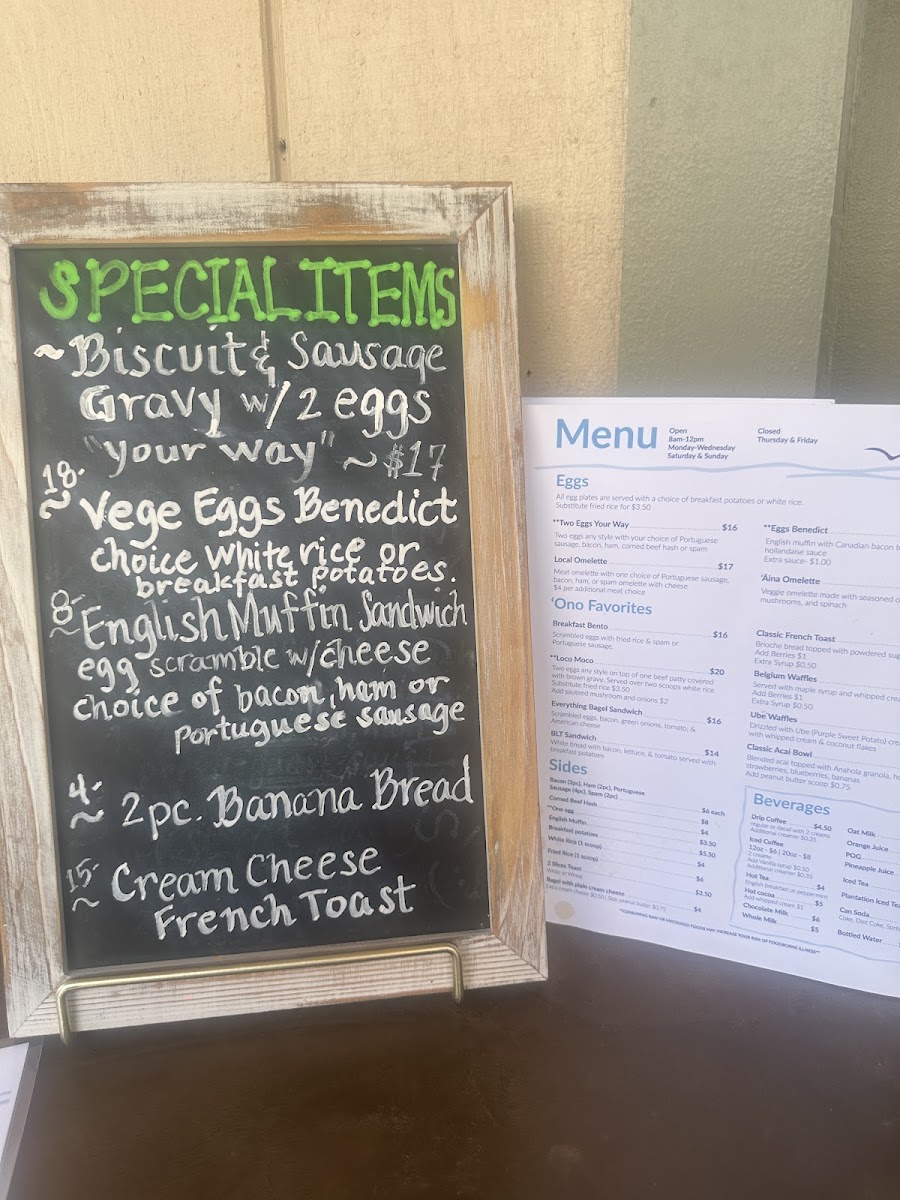 SPECIAL ITEMS
~Biscuit & Sausage
Gravy w/ 2 eggs
"your way" ~$17
18-
~ Vege Eggs Benedict
choice white rice or
breakfast potatoes.
8-
~ English Muffin Sandwich
egg scramble w/cheese
choice of bacon, ham or
Portuguese sausage
4-
~ 2pc. Banana Bread
15-
~ Cream Cheese
French Toast
Menu
Open
8am-12pm
Monday-Wednesday
Saturday & Sunday
Closed
Thursday & Friday
Eggs
All egg plates are served with a choice of breakfast potatoes or white rice.
Substitute fried rice for $3.50
**Two Eggs Your Way $16
Two eggs any style with your choice of Portuguese
sausage, bacon, ham, corned beef hash or spam
Local Omelette $17
Meat omelette with one choice of Portuguese sausage,
bacon, ham, or spam omelette with cheese
$4 per additional meat choice
**Eggs Benedict
English muffin with Canadian bacon
hollandaise sauce
Extra sauce- $1.00
'Aina Omelette
Veggie omelette made with seasoned
mushrooms, and spinach
'Ono Favorites
Breakfast Bento $16
Scrambled eggs with fried rice & spam or
Portuguese sausage.
**Loco Moco $20
Two eggs any style on top of one beef patty covered
with brown gravy. Served over two scoops white rice
Substitute fried rice $3.50
Add sauteed mushroom and onions $2
Everything Bagel Sandwich $16
Scrambled eggs, bacon, green onions, tomato, &
American cheese
BLT Sandwich $14
White bread with bacon, lettuce, & tomato served with
breakfast potatoes
Classic French Toast
Brioche bread topped with powdered
Add Berries $1
Extra Syrup $0.50
Belgium Waffles
Served with maple syrup and whipped
Add Berries $1
Extra Syrup $0.50
Ube Waffles
Drizzled with Ube (Purple Sweet Potato)
with whipped cream & coconut flakes
Classic Acai Bowl
Blended acai topped with Anahola granola,
strawberries, blueberries, bananas
Add peanut butter scoop $0.75
Sides
Bacon (3pc), Ham (2pc), Portuguese
Sausage (4pc), Spam (2pc) $6 each
Corned Beef Hash $8
**One egg $4
English Muffin $3.50
Breakfast potatoes $5.50
White Rice (1 scoop) $4
Fried Rice (1 scoop) $6
2 Slices Toast $3.50
White or Wheat
Bagel with plain cream cheese $4
**CONSUMING RAW OR UNCOOKED FOODS MAY INCREASE YOUR RISK OF FOODBORNE ILLNESS**
Beverages
Drip Coffee $4.50
regular or decaf with 2 creams
Additional creamer $0.25
Iced Coffee
12oz - $6 | 20oz - $8
2 creams
Add Vanilla syrup $0.50
Additional creamer $0.35
Hot Tea $4
English breakfast or peppermint
Hot cocoa $5
Add whipped cream $1
Chocolate Milk $6
Whole Milk $5
Oat Milk
Orange Juice
POG
Pineapple Juice
Iced Tea
Plantation Iced Tea
Can Soda
Coke, Diet Coke,
Bottled Water